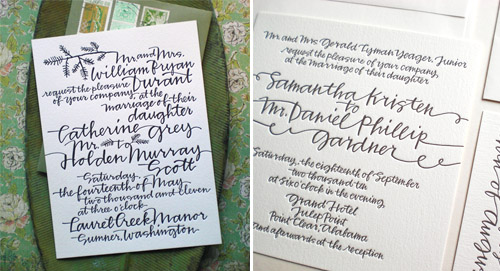 Mr. and Mrs.
William Ryan
Durant
request the pleasure
of your company, at the
marriage of their
daughter
Catherine Grey
to
Mr. Holden Murray
Scott
Saturday
the fourteenth of May
two thousand and eleven
at three o'clock
Laurel Creek Manor
Sumner, Washington
Mr. and Mrs. Gerald Tyman Yeager, Junior
request the pleasure of your company,
at the marriage of their daughter
Samantha Kristen
to
Mr. Daniel Phillip
Gardner
Saturday, the eighteenth of September
two thousand ten
at six o'clock in the evening,
Grand Hotel
Julep Point
Point Clear, Alabama
and afterwards at the reception